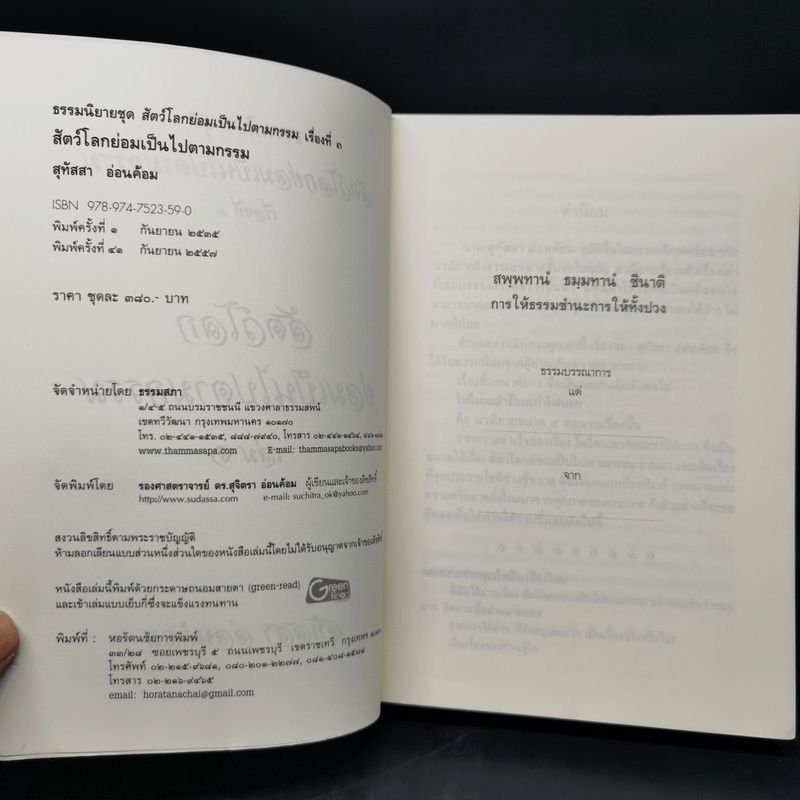 ธรรมนิยายชุด สัตว์โลกย่อมเป็นไปตามกรรม เรื่องที่ ๓
สัตว์โลกย่อมเป็นไปตามกรรม
สุทัสสา อ่อนค้อม
ISBN 978-974-7523-59-0
พิมพ์ครั้งที่ ๑ กันยายน ๒๕๓๕
พิมพ์ครั้งที่ ๔๑ กันยายน ๒๕๕๗
ราคา ชุดละ ๓๘๐.- บาท
จัดจำหน่ายโดย ธรรมสภา
๑/๔-๕ ถนนบรมราชชนนี แขวงศาลาธรรมสพน์
เขตทวีวัฒนา กรุงเทพมหานคร ๑๐๑๗๐
โทร. ๐๒-๔๔๑-๑๕๓๕, ๘๘๘-๗๙๔๐, โทรสาร ๐๒-๔๔๑-๑๔๖๔,
www.thammasapa.com E-mail: thammasapabooks@gmail.com
จัดพิมพ์โดย รองศาสตราจารย์ ดร.สุจิตรา อ่อนค้อม ผู้เขียนและเจ้าของลิขสิทธิ์
http://www.sudassa.com e-mail: suchitra_ok@yahoo.com
สงวนลิขสิทธิ์ตามพระราชบัญญัติ
ห้ามลอกเลียนแบบส่วนหนึ่งส่วนใดของหนังสือเล่มนี้โดยไม่ได้รับอนุญาตจากเจ้าของลิขสิทธิ์
หนังสือเล่มนี้พิมพ์ด้วยกระดาษถนอมสายตา (green-read)
และเข้าเล่มแบบเย็บกี่ซึ่งจะแข็งแรงทนทาน
Green
Read
พิมพ์ที่ : หอรัตนชัยการพิมพ์
๓๓/๒๘ ซอยเพชรบุรี ๕ ถนนเพชรบุรี เขตราชเทวี กรุงเทพฯ
โทรศัพท์ ๐๒-๒๑๕-๙๖๘๑, ๐๘๐-๒๐๑-๒๒๗๗, ๐๘๑-๔๐๘-๑๕๗๘
โทรสาร ๐๒-๒๑๖-๙๔๖๕
email: horatanachai@gmail.com
สพฺพทานํ ธมฺมทานํ ชินาติ
การให้ธรรมชำนะการให้ทั้งปวง
ธรรมบรรณาการ
แด่
จาก